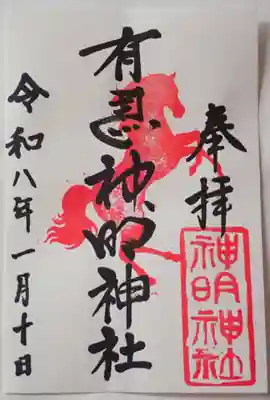 奉拝
神明神社
有恩神明神社
令和八年一月十日